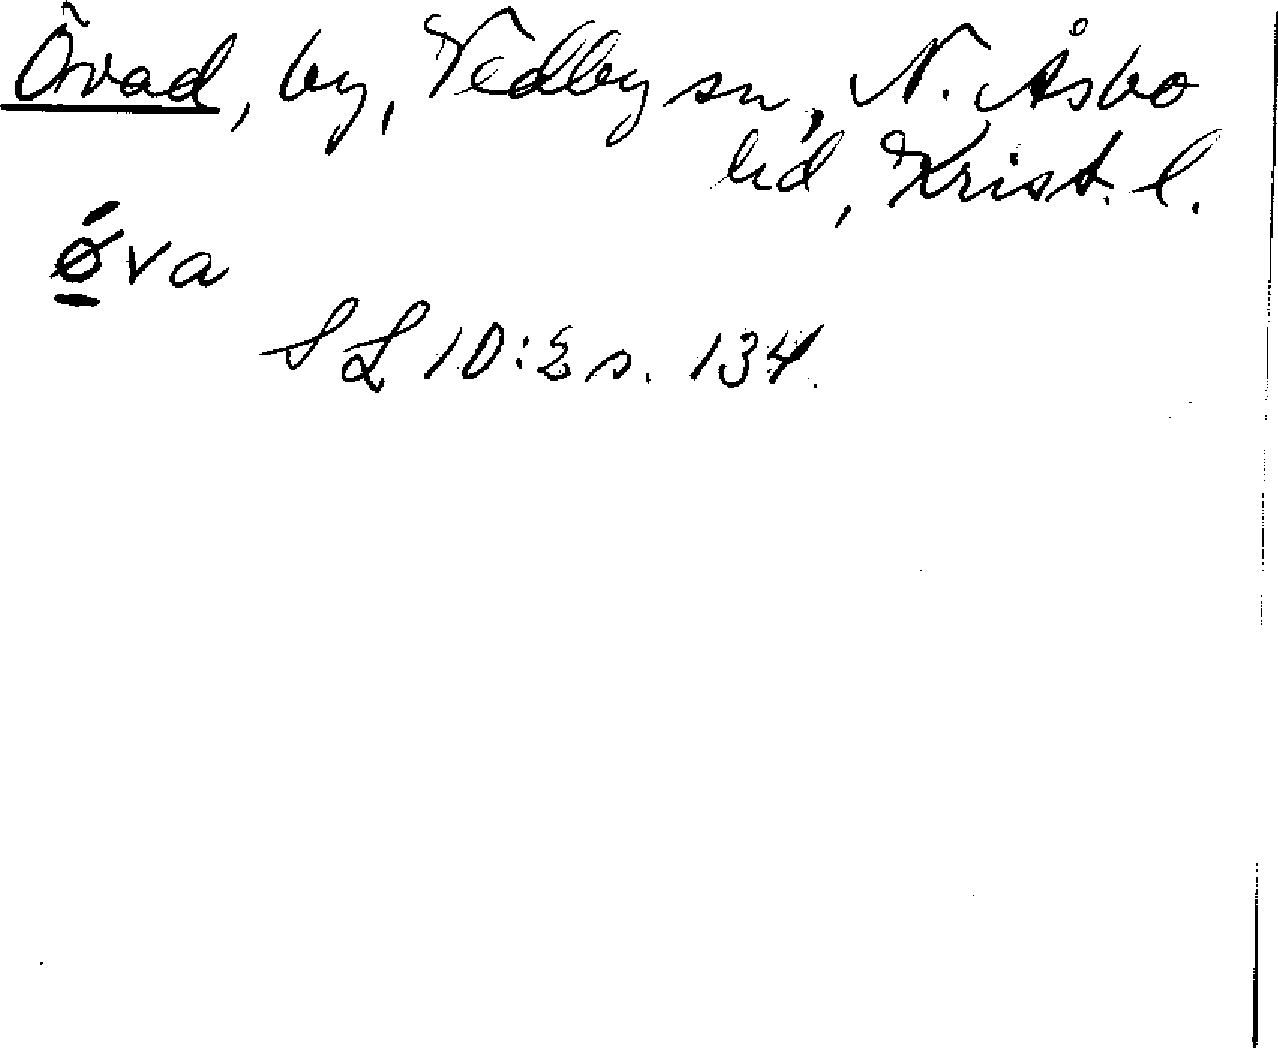 Övad, by, Vedby sn, N. Åsbo
hd, Krist. l.
ǿva
SL 10:2 s. 134.